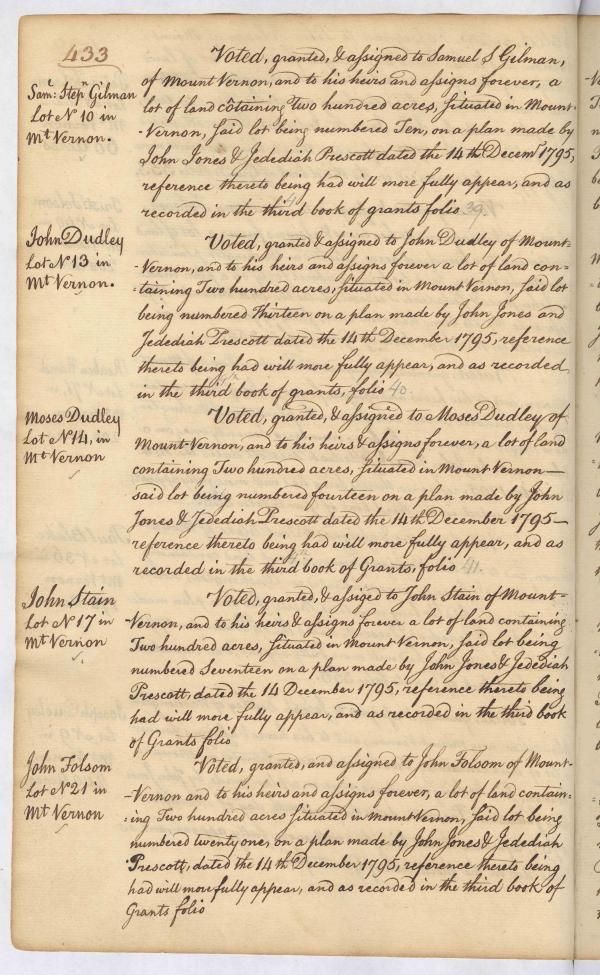 433
Saml. Stepn Gilman
Lot No 10 in
Mt Vernon.
Voted, granted, & assigned to Samuel S Gilman,
of Mount Vernon, and to his heirs and assigns forever, a
lot of land cōtaining two hundred acres, situated in Mount-
-Vernon, said lot being numbered Ten, on a plan made by
John Jones & Jedediah Prescott dated the 14th Decemr 1795,
reference thereto being had will more fully appear, and as
recorded in the third book of grants folio 39.
John Dudley
Lot No 13 in
Mt Vernon.
Voted, granted & assigned to John Dudley of Mount-
-Vernon, and to his heirs and assigns forever a lot of land con=
=taining Two hundred acres, situated in Mount Vernon, said lot
being numbered Thirteen on a plan made by John Jones and
Jedediah Prescott dated the 14th December 1795, reference
thereto being had will more fully appear, and as recorded
in the third book of grants, folio 40.
Moses Dudley
Lot No 14, in
Mt Vernon
Voted, granted, & assigned to Moses Dudley of
Mount-Vernon, and to his heirs & assigns forever, a lot of land
containing Two hundred acres, situated in Mount Vernon—
said lot being numbered fourteen on a plan made by John
Jones & Jedediah Prescott dated the 14th December 1795—
reference thereto being had will more fully appear, and as
recorded in the third book of Grants, folio 41.
John Stain
Lot No 17 in
Mt Vernon
Voted, granted, & assiged to John Stain of Mount=
-Vernon, and to his heirs & assigns forever a lot of land containing
Two hundred acres, situated in Mount Vernon, said lot being
numbered Seventeen on a plan made by John Jones & Jedediah
Prescott, dated the 14 December 1795, reference thereto being
had will more fully appear, and as recorded in the third book
of Grants folio
John Folsom
Lot No 21 in
Mt Vernon
Voted, granted, and assigned to John Folsom of Mount-
-Vernon and to his heirs and assigns forever, a lot of land contain=
=ing Two hundred acres situated in Mount Vernon, said lot being
numbered twenty one, on a plan made by John Jones & Jedediah
Prescott, dated the 14th December 1795, reference thereto being
had will more fully appear, and as recorded in the third book of
Grants folio